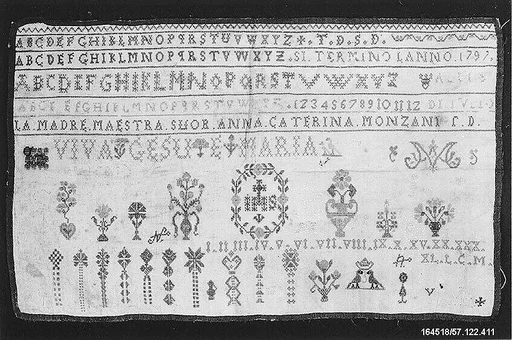 ABCDEFGHIKLMNOPQRSTUVWXYZ
ABCDEFGHIKLMNOPQRSTVWXYZ. SI. TERMINO LANNO. 1797.
ABCDEFGHIKLMNOPQRSTUVWXYZ
ABCDEFGHIKLMNOPQRSTUVWXYZ. 1 2 3 4 5 6 7 8 9 10 11 12
LA. MADRE. MAESTRA. SUOR. ANNA. CATERINA. MONZANI
VIVA GESU E MARIA
IHS
I. II. IIII. IV. V. VI. VII. VIII. IX. X. XV. XX. XXX.
XL. L. C. M.
164518/57.122.411